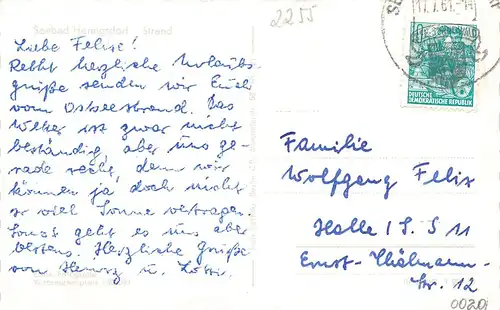 2255
Seebad Heringsdorf Strand
Liebe Felixe!
Recht herzliche Urlaubs
grüße senden wir Euch
vom Ostseestrand. Das
Wetter ist zwar nicht
beständig, aber uns ge-
rade recht, denn wir
können ja doch nicht
so viel Sonne vertragen.
Sonst geht es uns aber
bestens. Herzliche Grüße
von u.
17.7.61.-14
10
DEUTSCHE
DEMOKRATISCHE REPUBLIK
Familie
Wolfgang Felix
Halle / S. S 11
Ernst-Thälmann-
Str. 12
0020